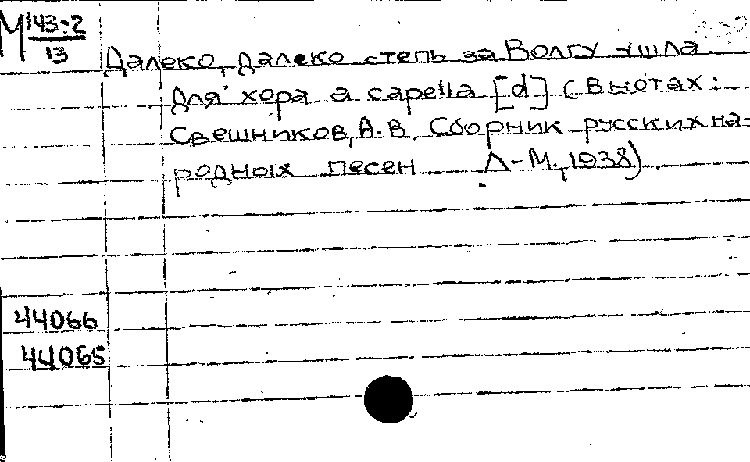 М 143-2
13
Далеко, далеко степь за Волгу ушла
для хора a capella [d] (В нотах:
Свешников, А.В. Сборник русских на-
родных песен Л-М, 1938).
44066
44065